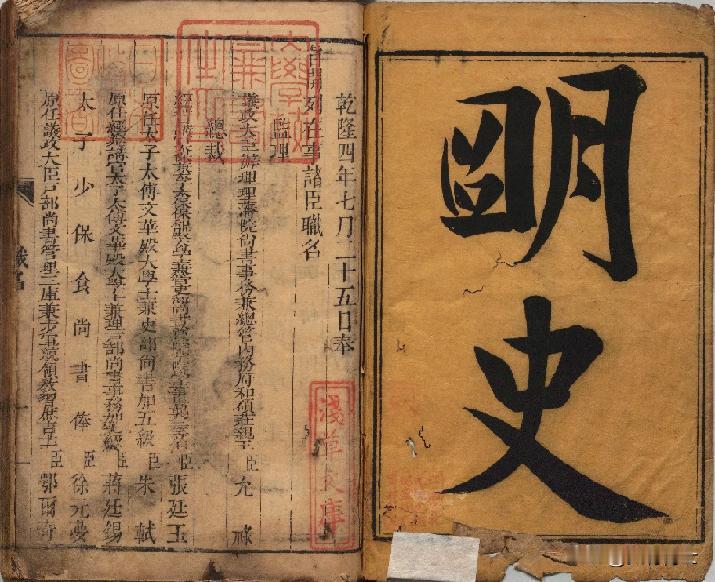 朙史
乾隆四年七月二十五日奉
旨開列在事諸臣職名
監理
議政大臣辦理理藩院尚書事務兼總管內務府和碩莊親王臣允祿
總裁
經筵講官太保兼 臣張廷玉
原任太子太傅文華殿大學士兼吏部尚書加五級臣朱軾
原任經筵講官太子太傅文華殿大學士兼理戶部尚書事務加級臣蔣廷錫
太子少保食尚書俸臣徐元夢
原任議政大臣戶部尚書管理三庫兼步軍統領教習庶吉士臣鄂爾奇
職名
淺草文庫